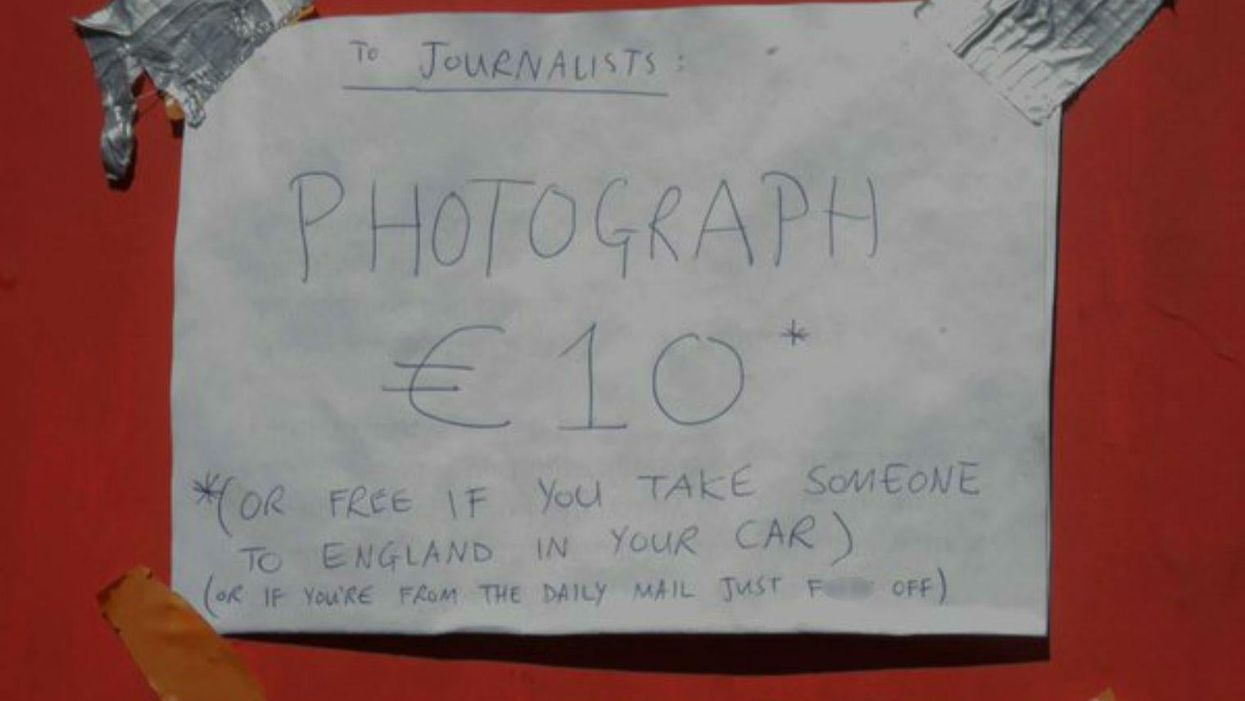 TO JOURNALISTS:
PHOTOGRAPH
€10*
*(OR FREE IF YOU TAKE SOMEONE
TO ENGLAND IN YOUR CAR)
(OR IF YOU'RE FROM THE DAILY MAIL JUST F OFF)